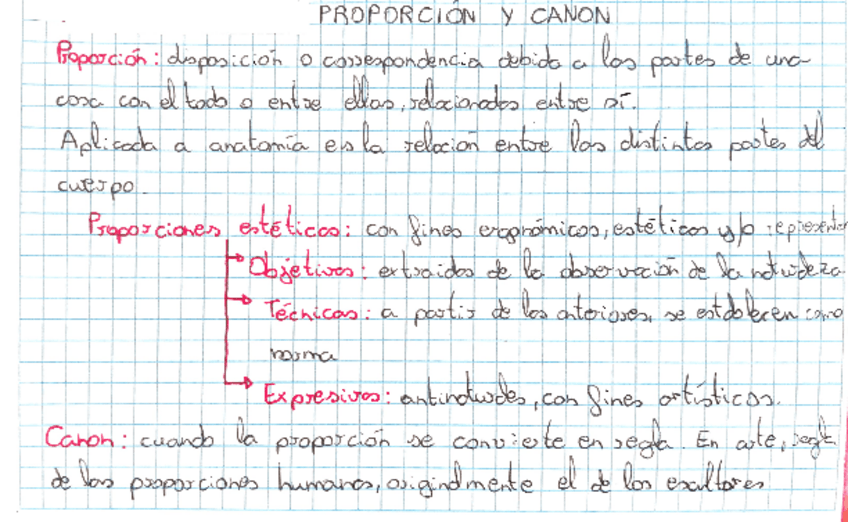 PROPORCIÓN Y CANON
Proporción: disposición o correspondencia debida a las partes de una
cosa con el todo o entre ellas, relacionados entre sí.
Aplicada a anatomía es la relación entre las distintas partes del
cuerpo.
Proporciones estéticas: con fines ergonómicos, estéticos y/o representar
Objetivas: extraidas de la observación de la naturaleza
Técnicas: a partir de las anteriores, se establecen como
norma
Expresivas: antinaturales, con fines artísticos.
Canon: cuando la proporción se convierte en regla. En arte, regla
de las proporciones humanas, originalmente el de los escultores